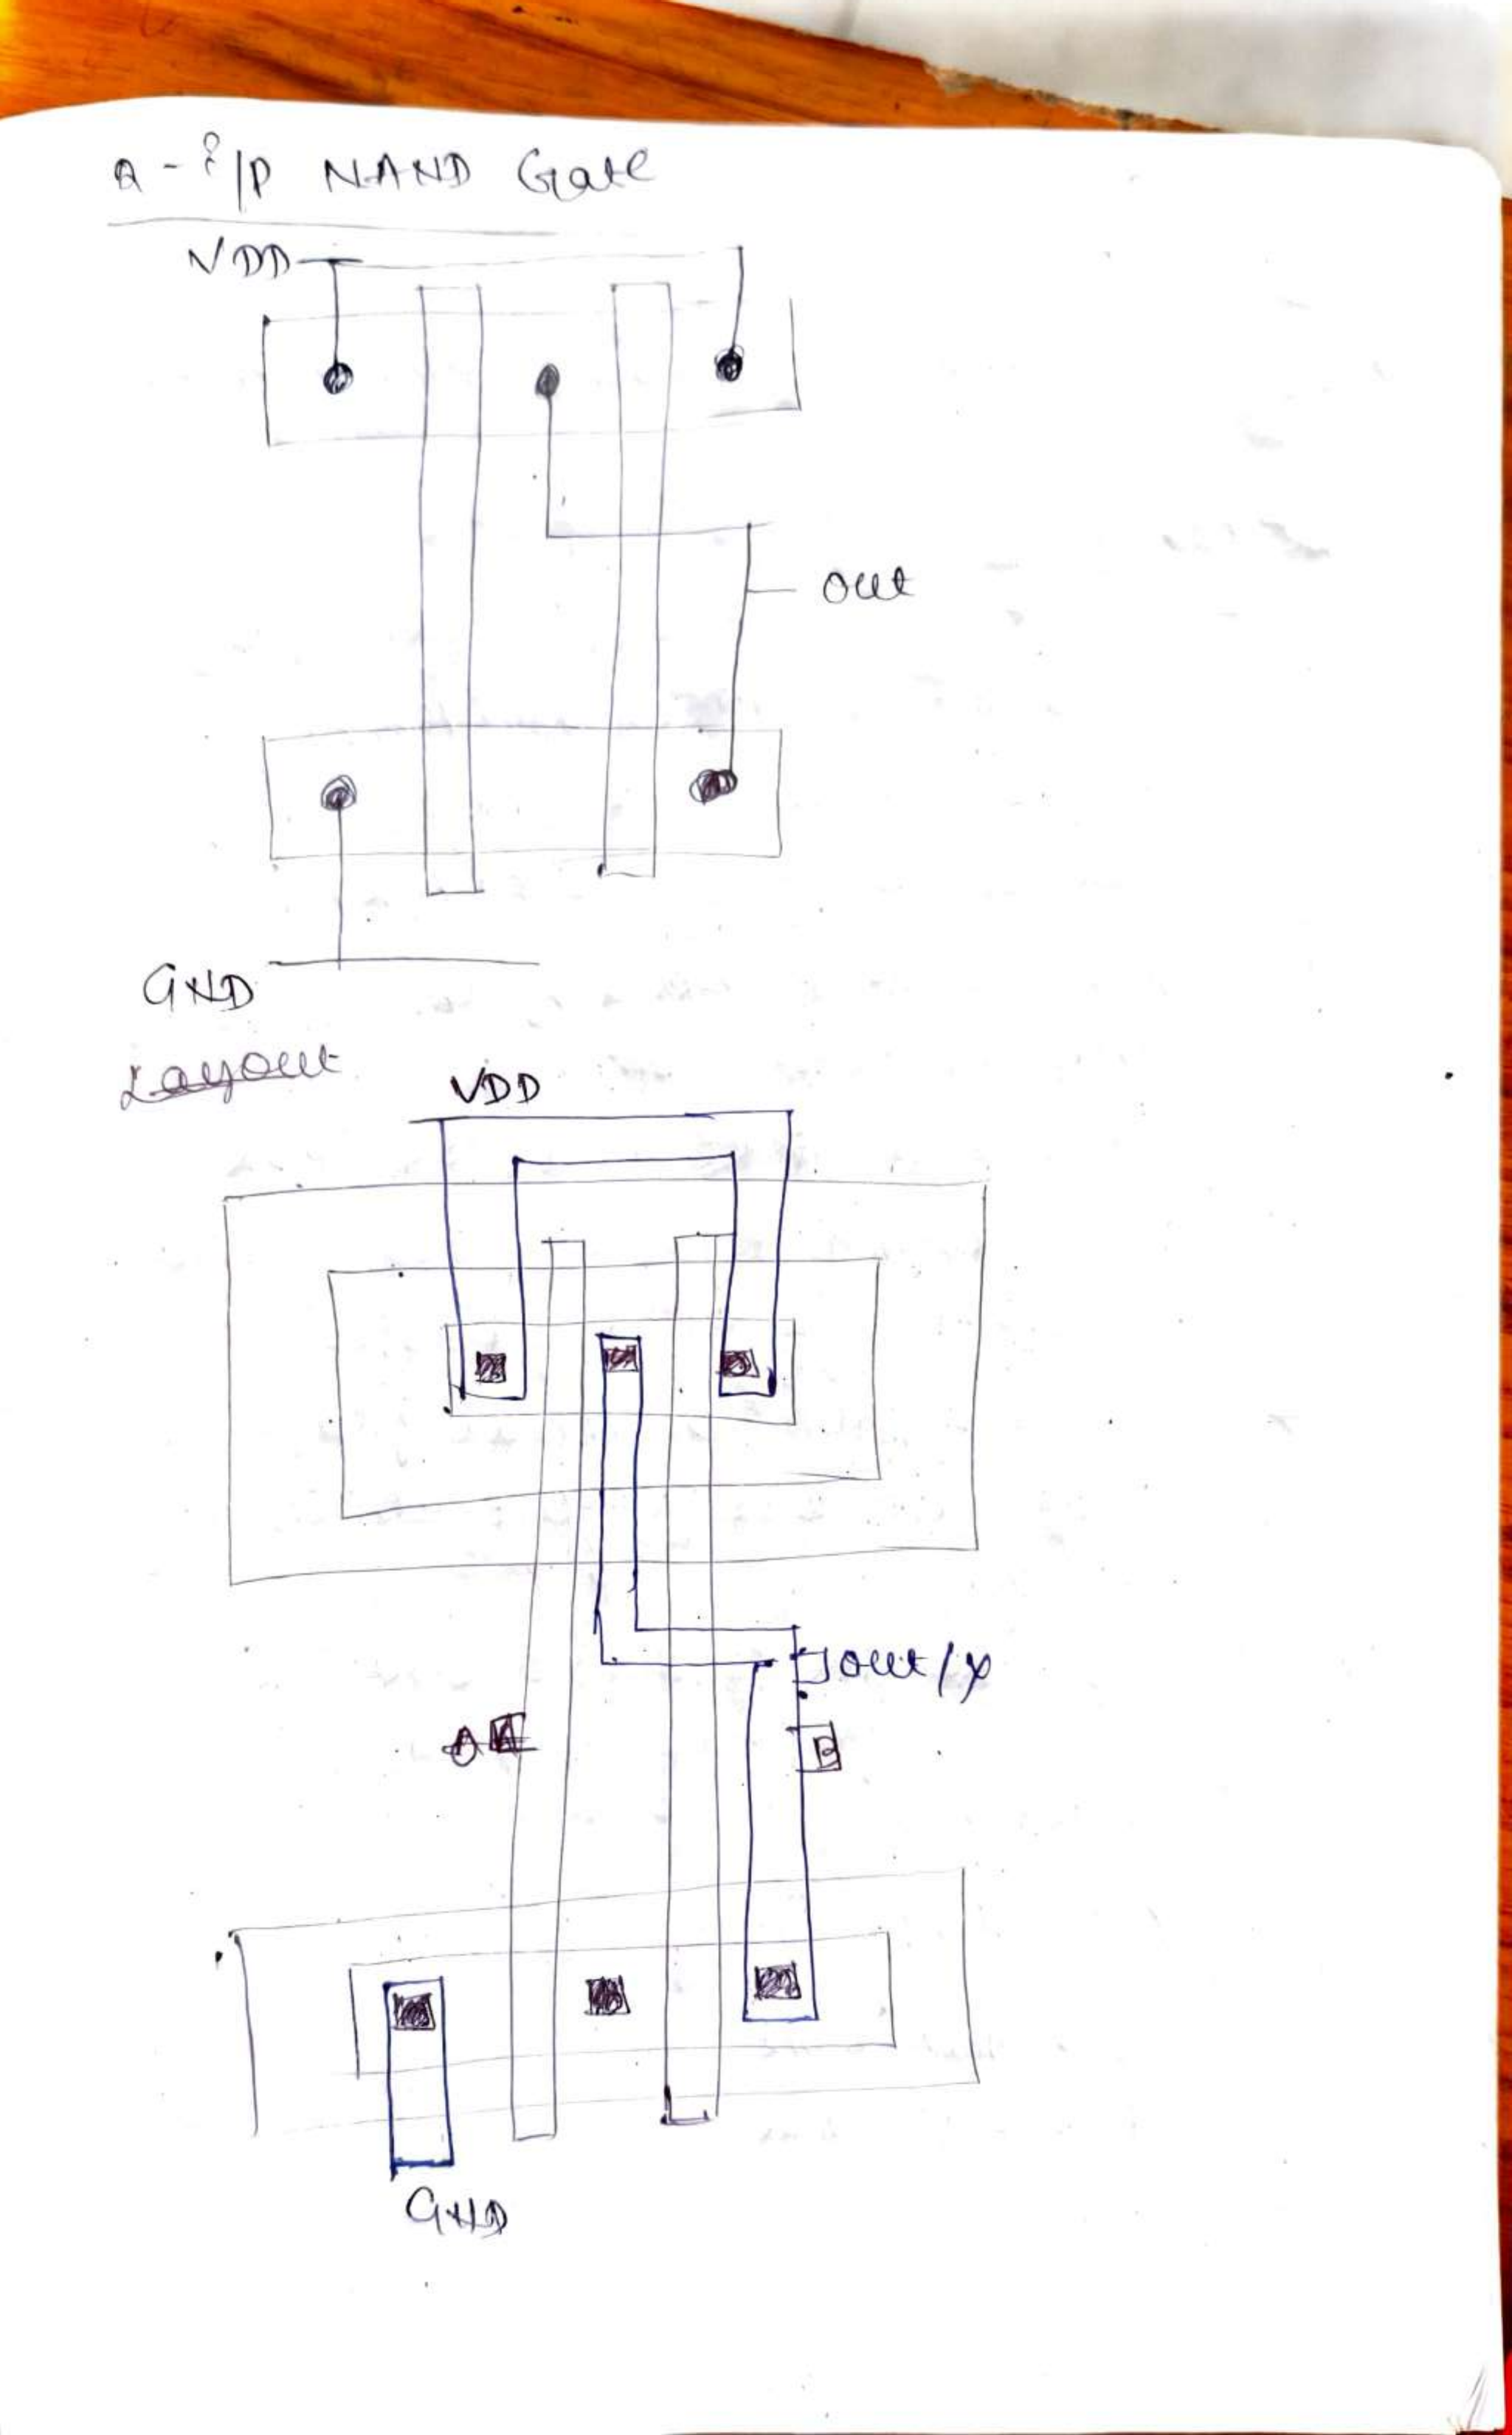 2-i/p NAND Gate
VDD
out
GND
Layout
VDD
out/y
A
B
GND